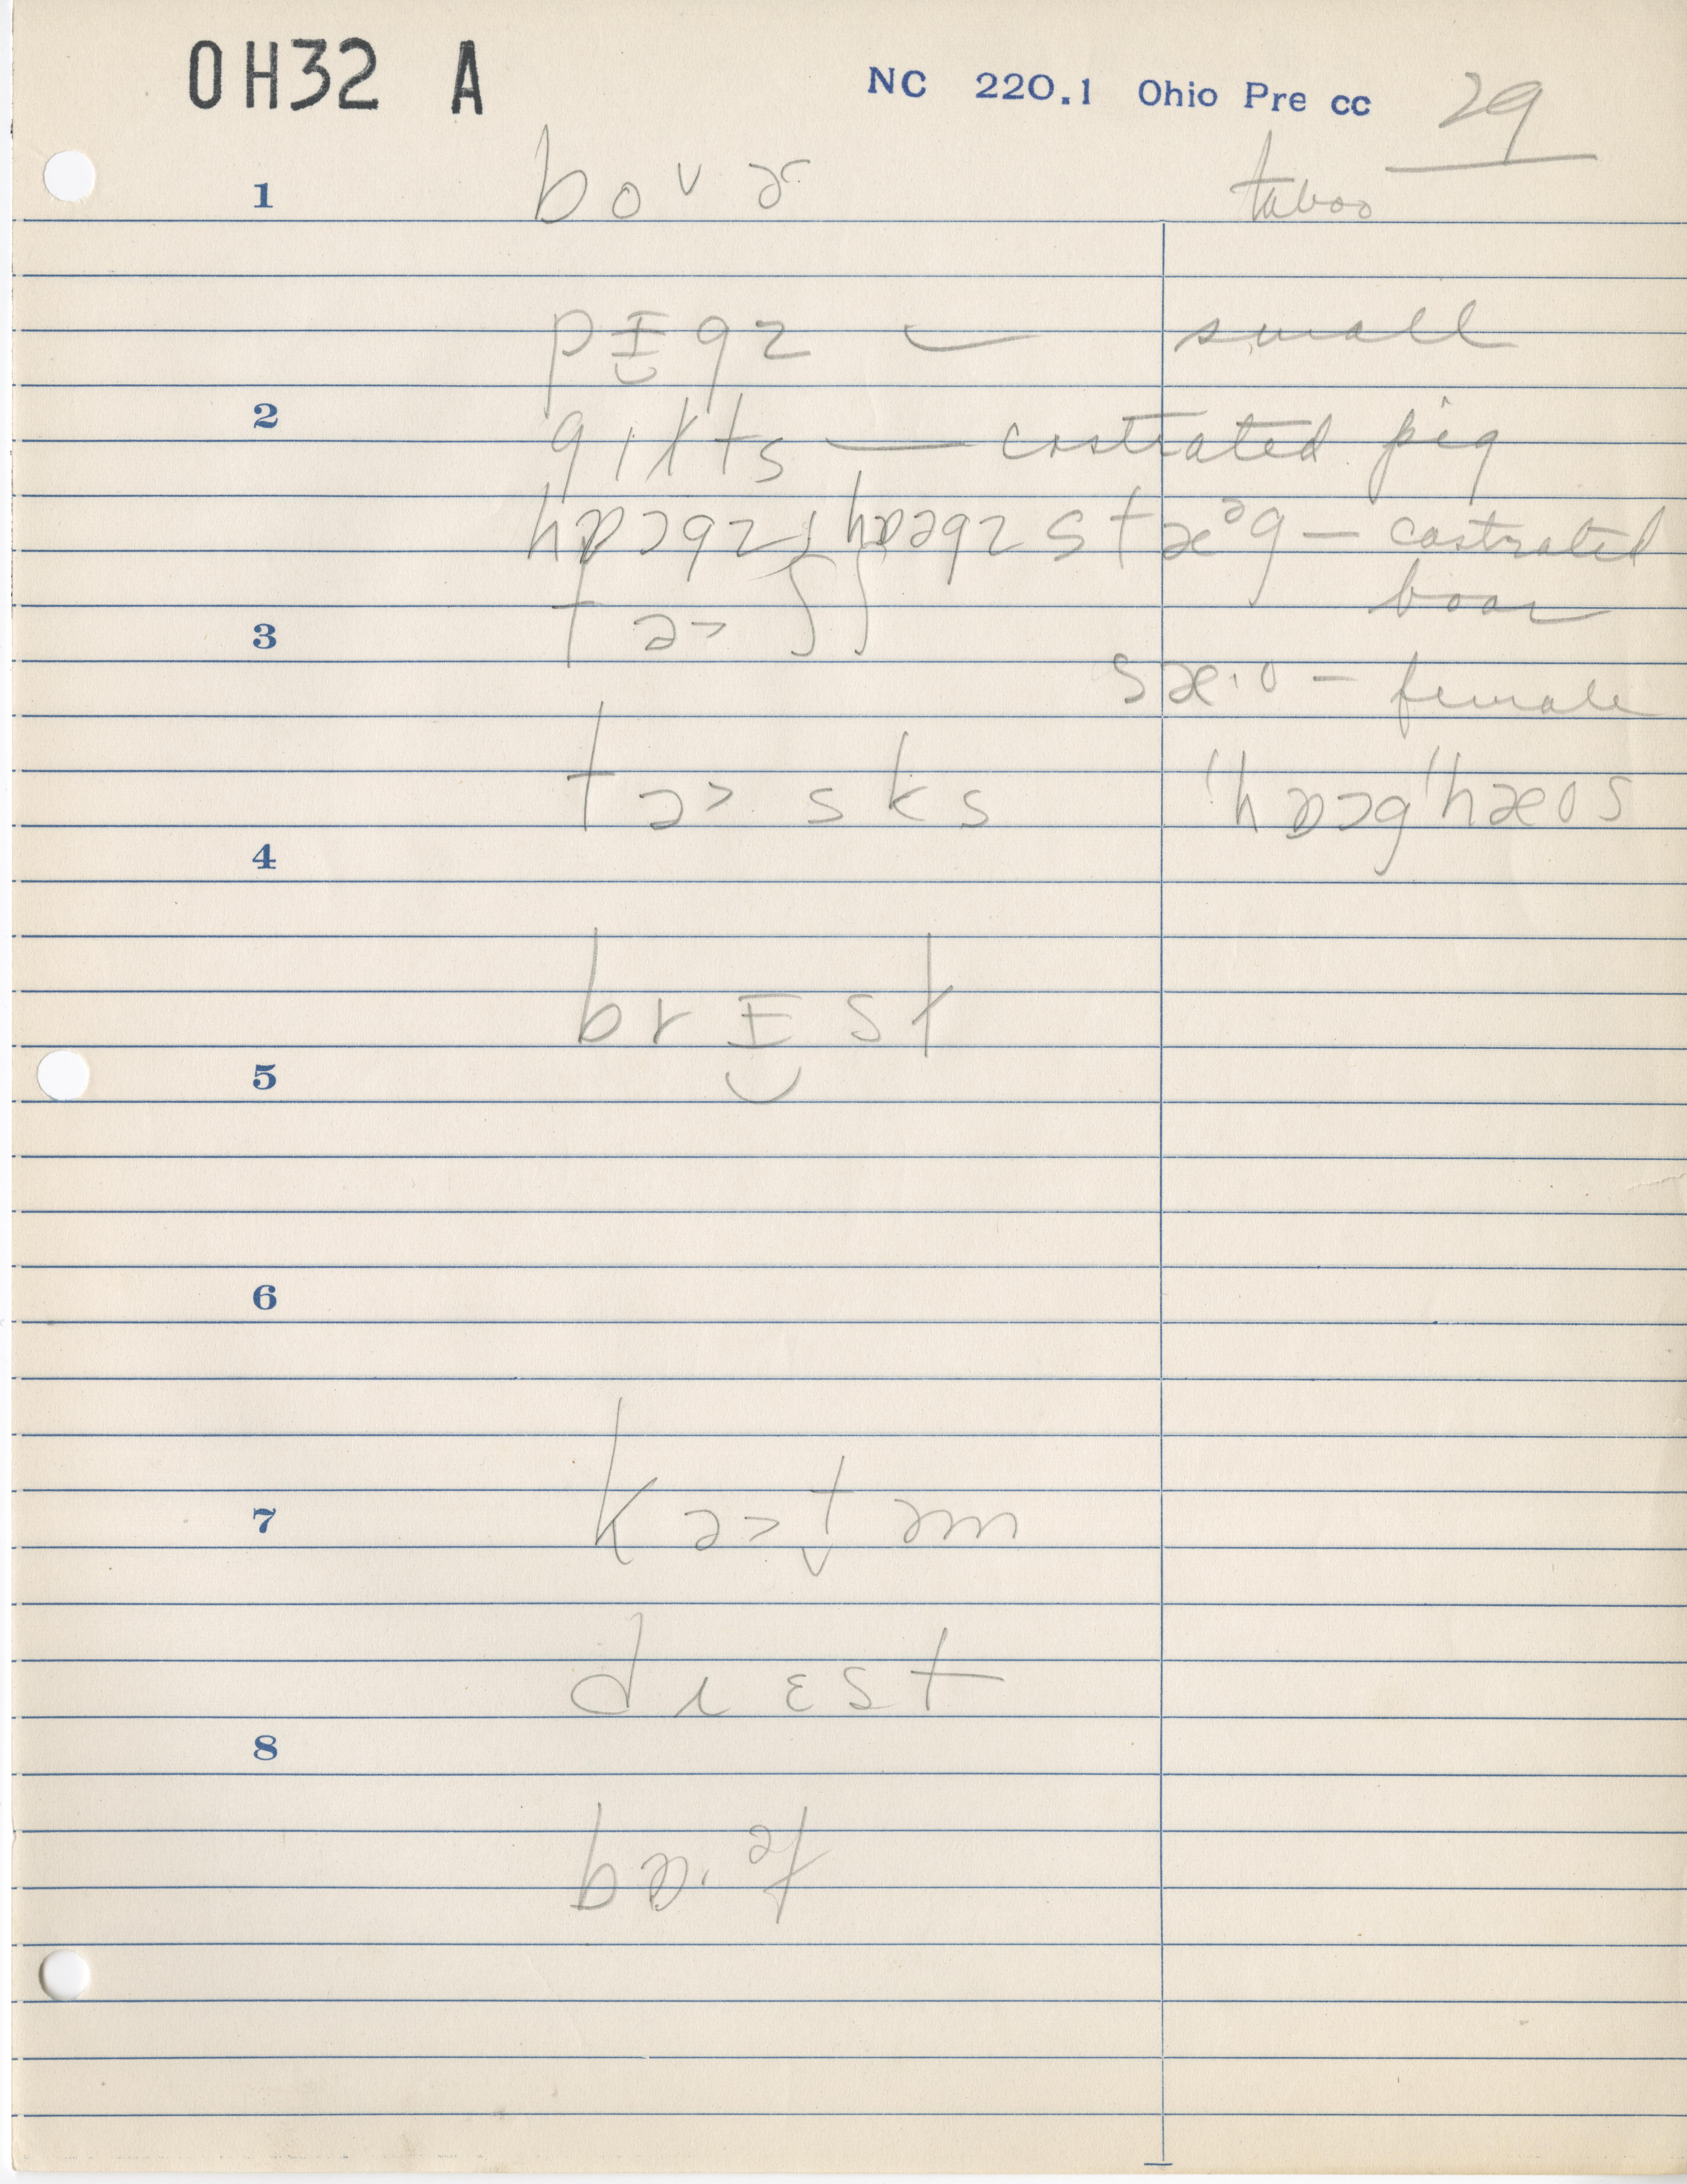 OH32 A
NC 220.1 Ohio Pre cc 29
1 bovɚ taboo
pɪ̯gz — small
2 gɪłts — castrated pig
hɒɔgz, hɒɔgz stæᵊg — castrated
boar
3 təʃ
sæ·ʊ — female
təsks 'hɒɔg'hæʊs
4
brɪ̯st
5
6
7 kət̬əm
drɛst
8
bɒ·ᵊt